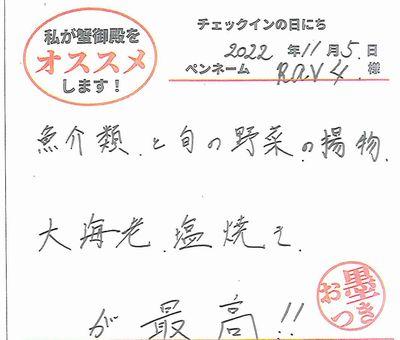 私が蟹御殿を
オススメ
します！
チェックインの日にち
2022 年 11 月 5 日
ペンネーム RAV4 様
魚介類と旬の野菜の揚物、
大海老、塩焼き、
が最高!!
お墨つき